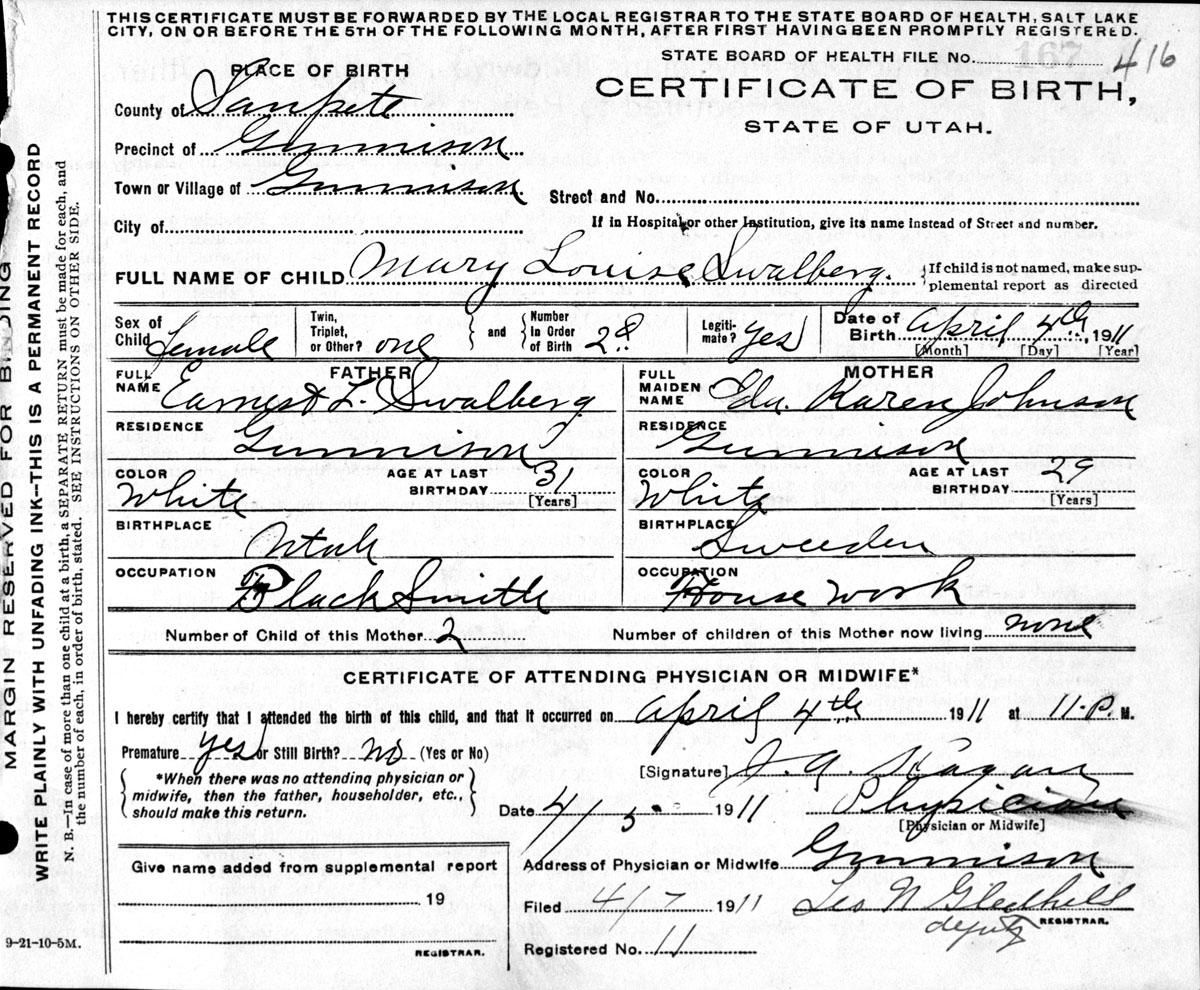 THIS CERTIFICATE MUST BE FORWARDED BY THE LOCAL REGISTRAR TO THE STATE BOARD OF HEALTH, SALT LAKE
CITY, ON OR BEFORE THE 5TH OF THE FOLLOWING MONTH, AFTER FIRST HAVING BEEN PROMPTLY REGISTERED.
STATE BOARD OF HEALTH FILE No. 416
167
PLACE OF BIRTH
CERTIFICATE OF BIRTH,
STATE OF UTAH.
County of Sanpete
Precinct of Gunnison
Town or Village of Gunnison
Street and No.
City of
If in Hospital or other Institution, give its name instead of Street and number.
FULL NAME OF CHILD Mary Louise Swalberg. {If child is not named, make sup-
plemental report as directed
Sex of Child Female Twin, Triplet, or Other? one } and { Number In Order of Birth 2d Legiti- mate? Yes Date of Birth April 4th, 1911
[Month] [Day] [Year]
FATHER MOTHER
FULL NAME Earnest L. Swalberg FULL MAIDEN NAME Eda. Karen Johnson
RESIDENCE Gunnison RESIDENCE Gunnison
COLOR White AGE AT LAST BIRTHDAY 31 [Years] COLOR White AGE AT LAST BIRTHDAY 29 [Years]
BIRTHPLACE Utah BIRTHPLACE Sweeden
OCCUPATION Black Smith OCCUPATION House work
Number of Child of this Mother 2 Number of children of this Mother now living none
CERTIFICATE OF ATTENDING PHYSICIAN OR MIDWIFE*
I hereby certify that I attended the birth of this child, and that it occurred on April 4th 1911 at 11-P. M.
Premature yes or Still Birth? no (Yes or No)
{ *When there was no attending physician or
midwife, then the father, householder, etc.,
should make this return. }
[Signature] J. A. Hagan
Date 4/5 1911 Physician
[Physician or Midwife]
Give name added from supplemental report
19
REGISTRAR.
Address of Physician or Midwife Gunnison
Filed 4/7 1911 Leo N Gledhill
deputy REGISTRAR.
Registered No. 11
9-21-10-5M.
MARGIN RESERVED FOR BINDING
WRITE PLAINLY WITH UNFADING INK—THIS IS A PERMANENT RECORD
N. B.—In case of more than one child at a birth, a SEPARATE RETURN must be made for each, and
the number of each, in order of birth, stated. SEE INSTRUCTIONS ON OTHER SIDE.